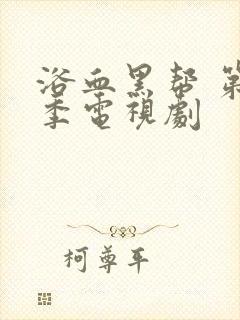 浴血黑帮 第
季電視劇
柯尊平